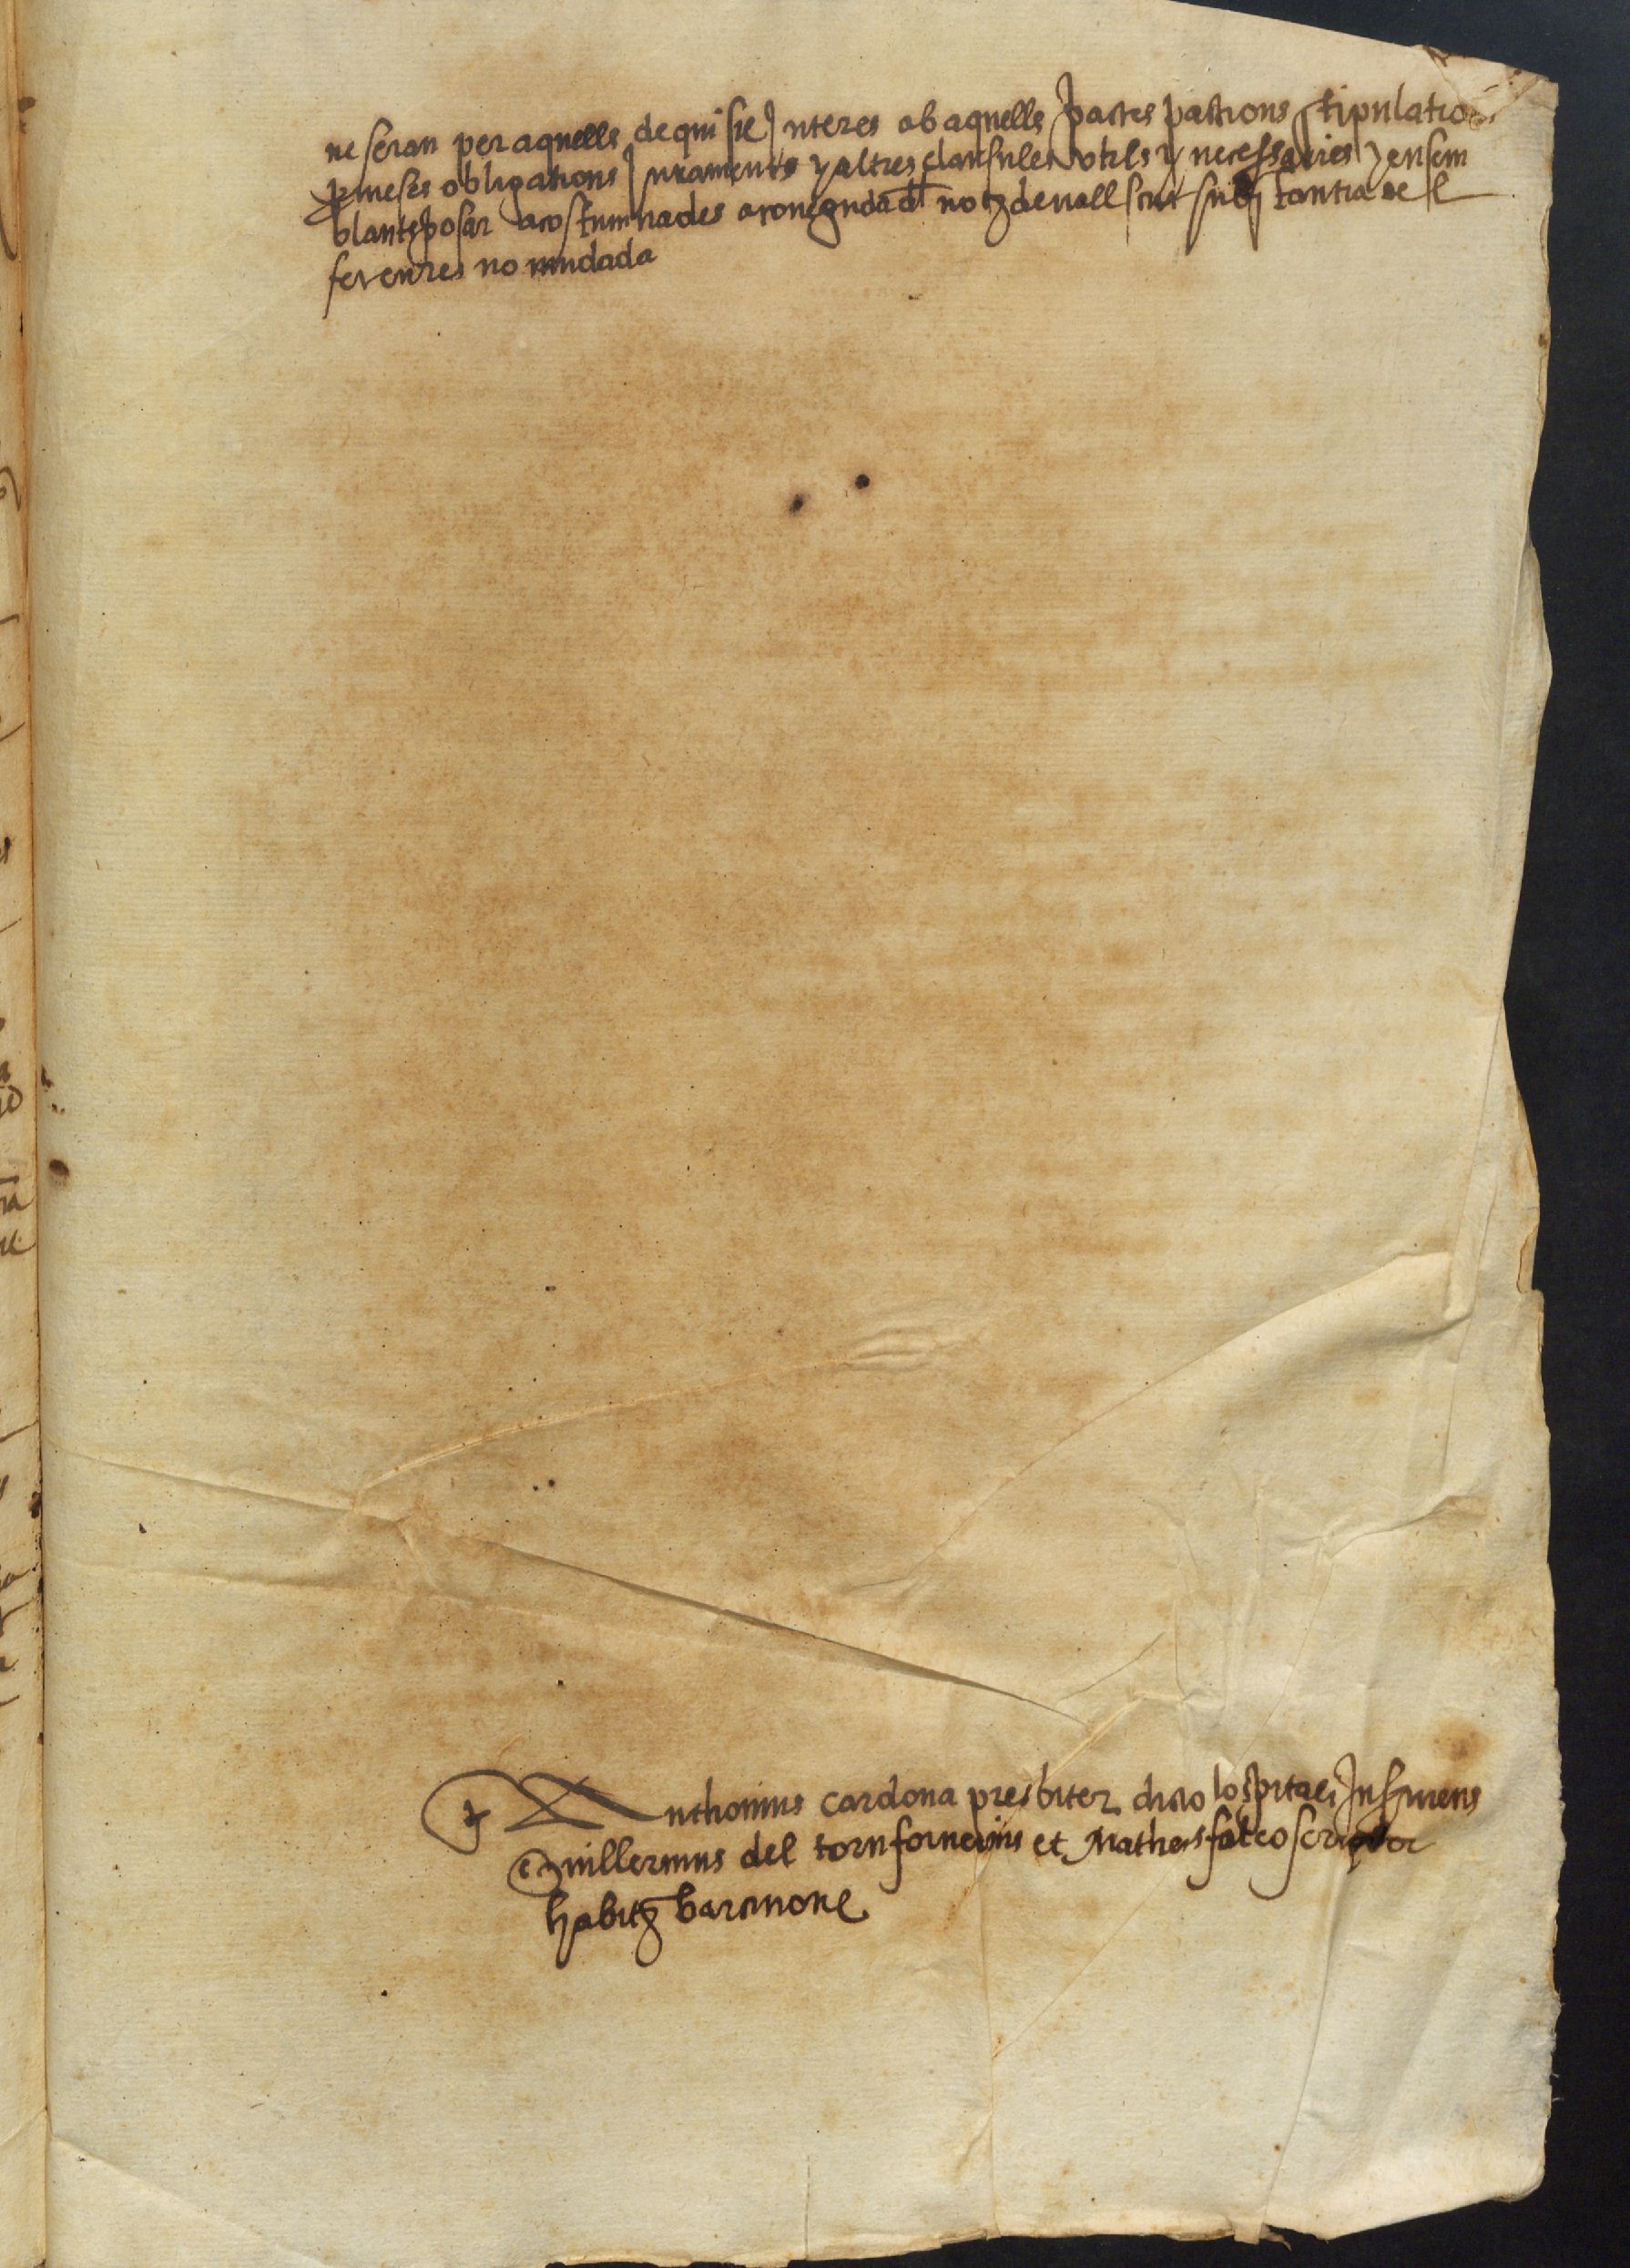 ne seran per aquells de qui sie Interes ab aquells pactes pactions stipulations
promeses obligations Juraments y altres clausules utils y necessaries y ensem
blants posar acostumades a coneguda dl not devall scrit substantia de
ferentres no mudada
Anthonius cardona presbiter dicto lospitali Inserviens
Guillermus del torn fornerius et Matheus falco scriptor
habitz barcinone